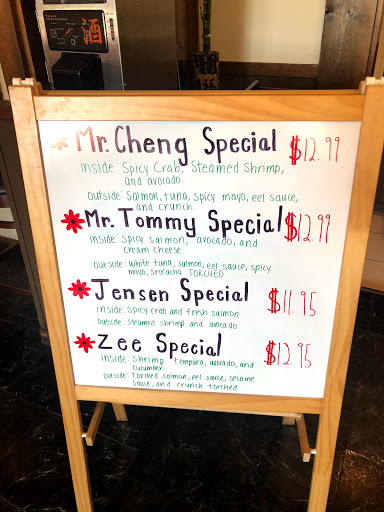 酒
Mr. Cheng Special $12.99
Inside: Spicy Crab, Steamed Shrimp,
and avocado.
Outside: Salmon, tuna, spicy mayo, eel sauce,
and crunch.
Mr. Tommy Special $12.99
Inside: Spicy salmon, avocado, and
cream cheese
Outside: White tuna, salmon, eel sauce, spicy
mayo, sriracha TORCHED
Jensen Special $11.95
Inside: spicy crab and fresh salmon
Outside: Steamed shrimp and avocado
Zee Special $12.95
Inside: Shrimp tempura, avocado, and
cucumber.
Outside: Torched salmon, eel sauce, sesame
sauce, and crunch torched